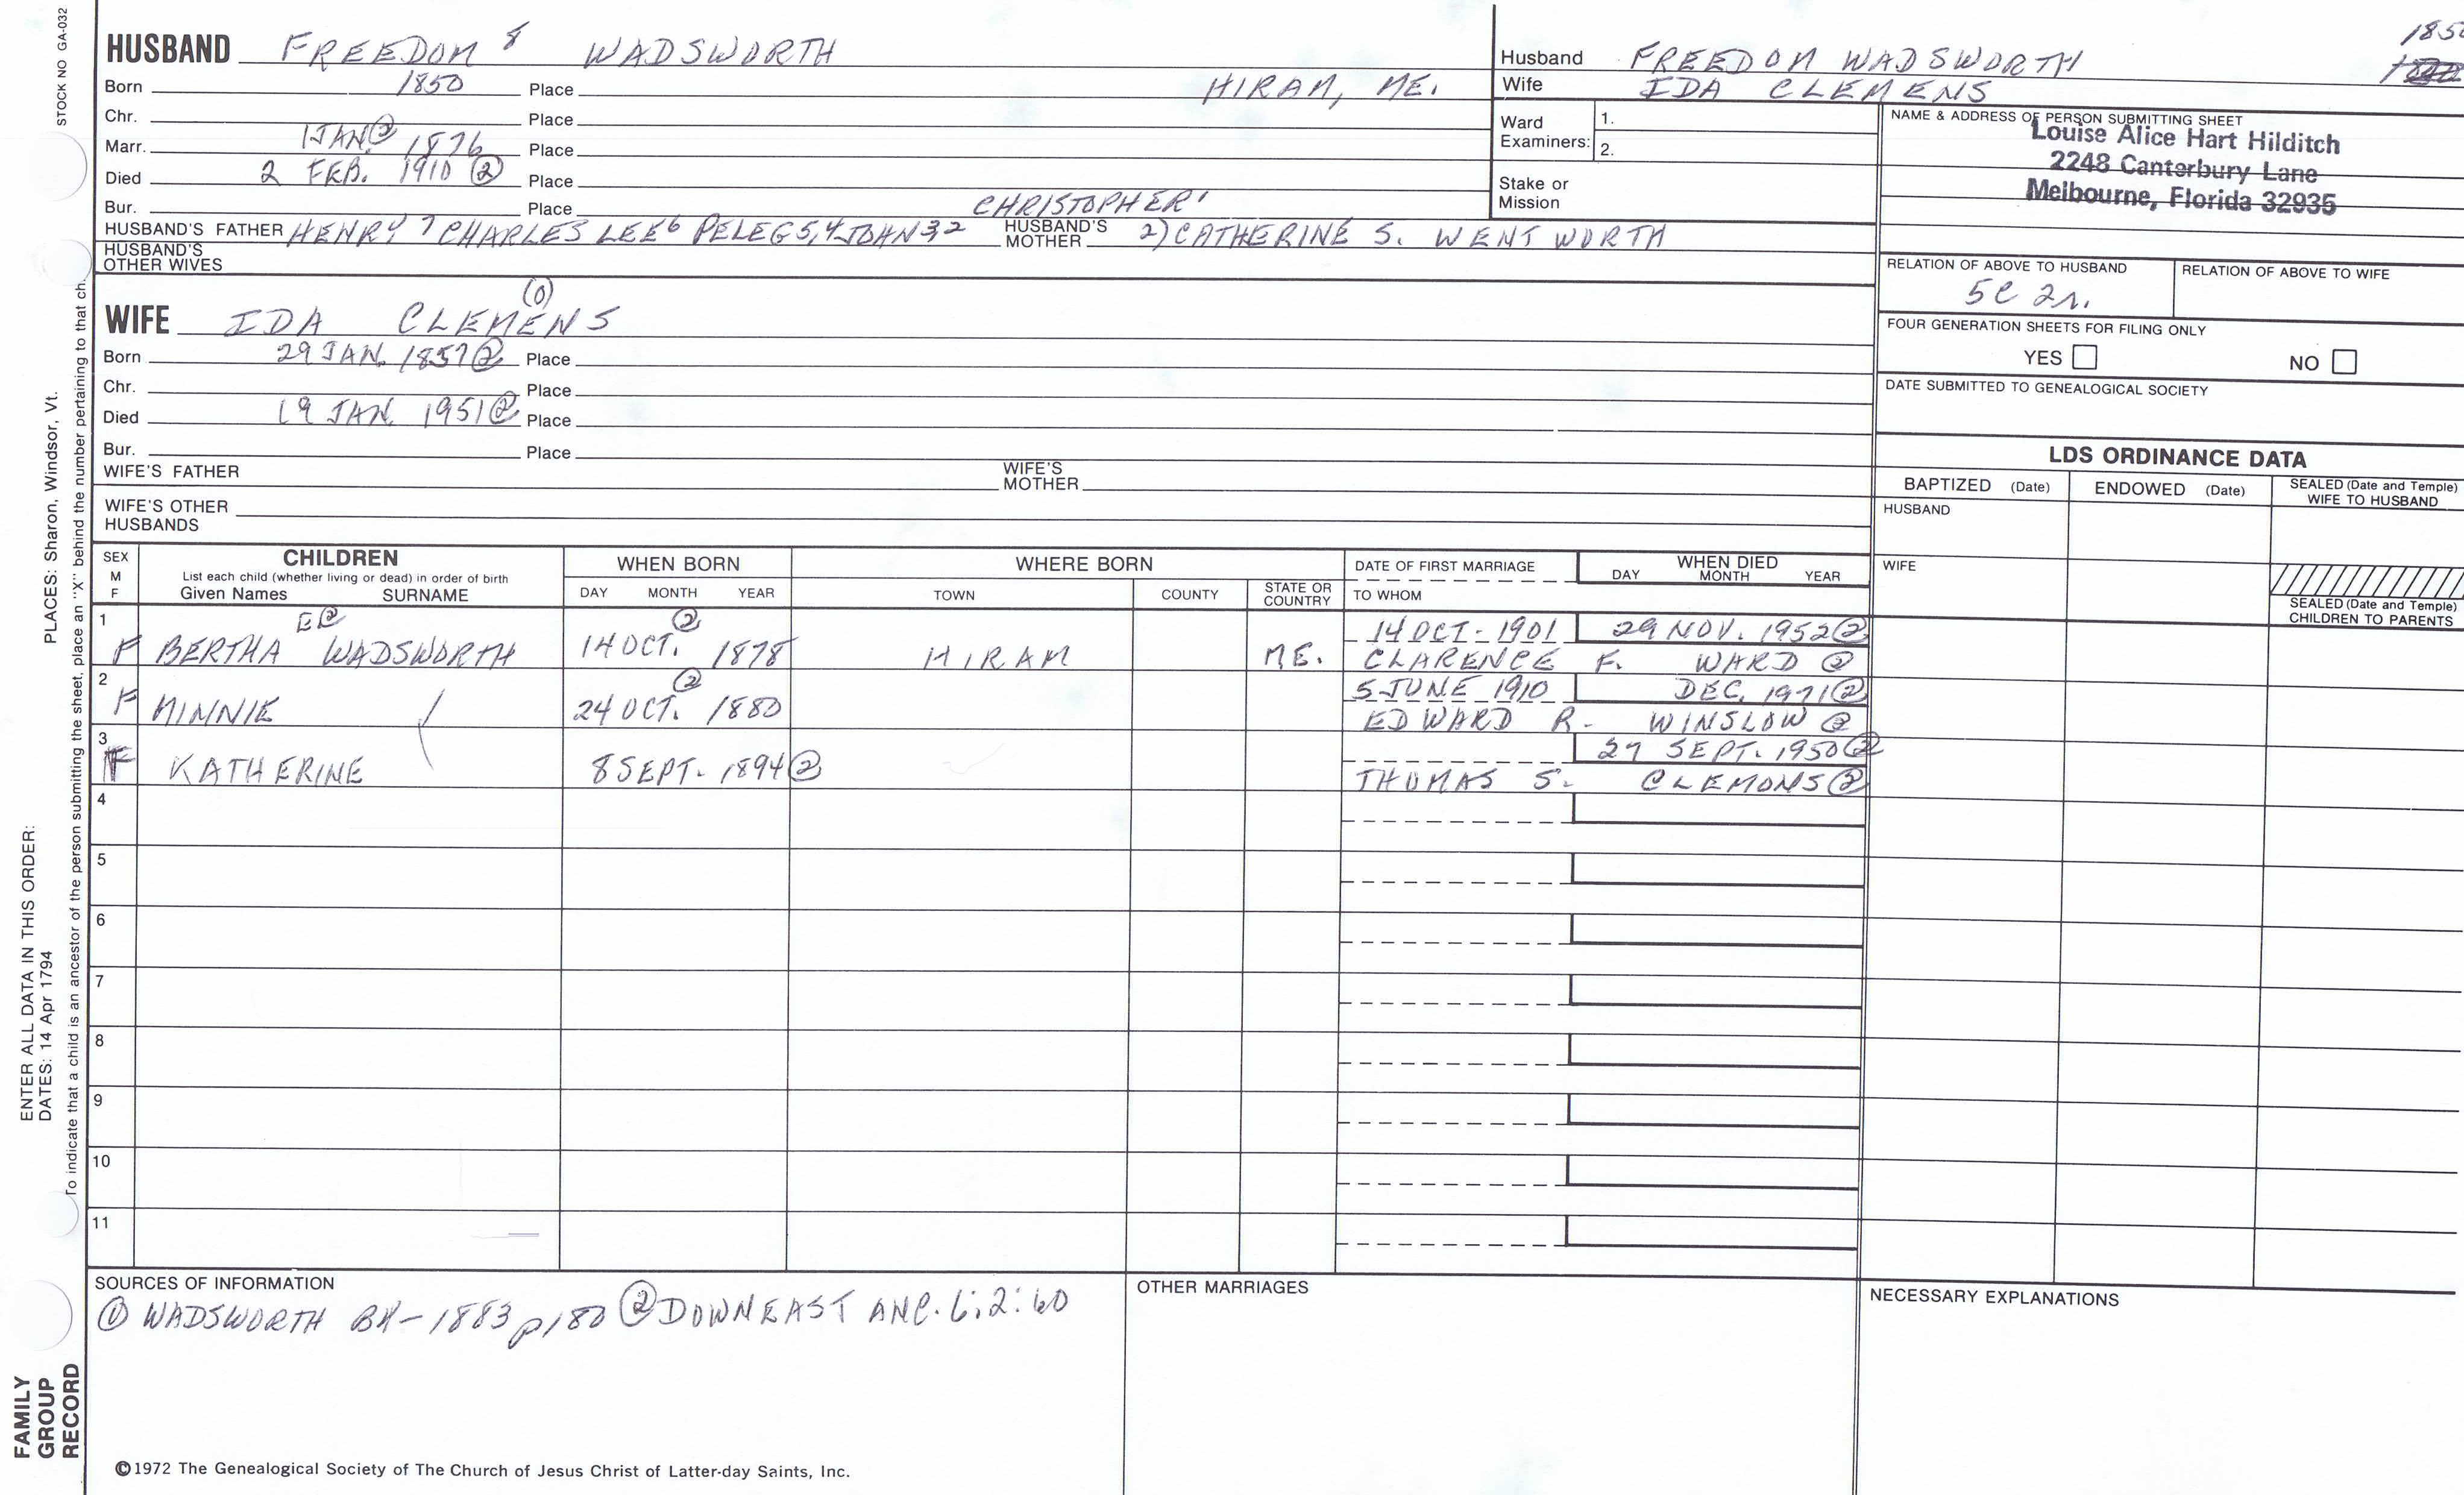 STOCK NO GA-032
HUSBAND FREEDOM 8 WADSWORTH
Born 1850 Place HIRAM, ME.
Chr. Place
Marr. 1 JAN ② 1876 Place
Died 2 FEB. 1910 ② Place
Bur. Place
CHRISTOPHER 1
HUSBAND'S FATHER HENRY 7 CHARLES LEE 6 PELEG 5,4 JOHN 3,2 HUSBAND'S MOTHER 2) CATHERINE S. WENTWORTH
HUSBAND'S OTHER WIVES
(0)
WIFE IDA CLEMENS
Born 29 JAN. 1857 ② Place
Chr. Place
Died 19 JAN. 1951 ② Place
Bur. Place
WIFE'S FATHER WIFE'S MOTHER
WIFE'S OTHER HUSBANDS
185
Husband FREEDOM WADSWORTH
Wife IDA CLEMENS
Ward Examiners: 1.
2.
Stake or Mission
NAME & ADDRESS OF PERSON SUBMITTING SHEET
Louise Alice Hart Hilditch
2248 Canterbury Lane
Melbourne, Florida 32935
RELATION OF ABOVE TO HUSBAND RELATION OF ABOVE TO WIFE
5C 2r.
FOUR GENERATION SHEETS FOR FILING ONLY
YES NO
DATE SUBMITTED TO GENEALOGICAL SOCIETY
LDS ORDINANCE DATA
BAPTIZED (Date) ENDOWED (Date) SEALED (Date and Temple) WIFE TO HUSBAND
HUSBAND
WIFE
SEALED (Date and Temple) CHILDREN TO PARENTS
SEX M F CHILDREN WHEN BORN WHERE BORN DATE OF FIRST MARRIAGE WHEN DIED
List each child (whether living or dead) in order of birth
Given Names SURNAME DAY MONTH YEAR TOWN COUNTY STATE OR COUNTRY TO WHOM DAY MONTH YEAR
1 E ② ② 14 OCT - 1901 29 NOV. 1952 ②
F BERTHA WADSWORTH 14 OCT. 1878 HIRAM ME. CLARENCE F. WARD ②
2 ② 5 JUNE 1910 DEC. 1971 ②
F MINNIE 24 OCT. 1880 EDWARD R. WINSLOW ②
3 27 SEPT. 1950 ②
F KATHERINE 8 SEPT. 1894 ② THOMAS S. CLEMONS ②
4
5
6
7
8
9
10
11
SOURCES OF INFORMATION
① WADSWORTH BK - 1883 p180 ② DOWNEAST ANC. 6:2:60
OTHER MARRIAGES
NECESSARY EXPLANATIONS
©1972 The Genealogical Society of The Church of Jesus Christ of Latter-day Saints, Inc.
FAMILY GROUP RECORD
ENTER ALL DATA IN THIS ORDER:
DATES: 14 Apr 1794 PLACES: Sharon, Windsor, Vt.
To indicate that a child is an ancestor of the person submitting the sheet, place an "X" behind the number pertaining to that ch.